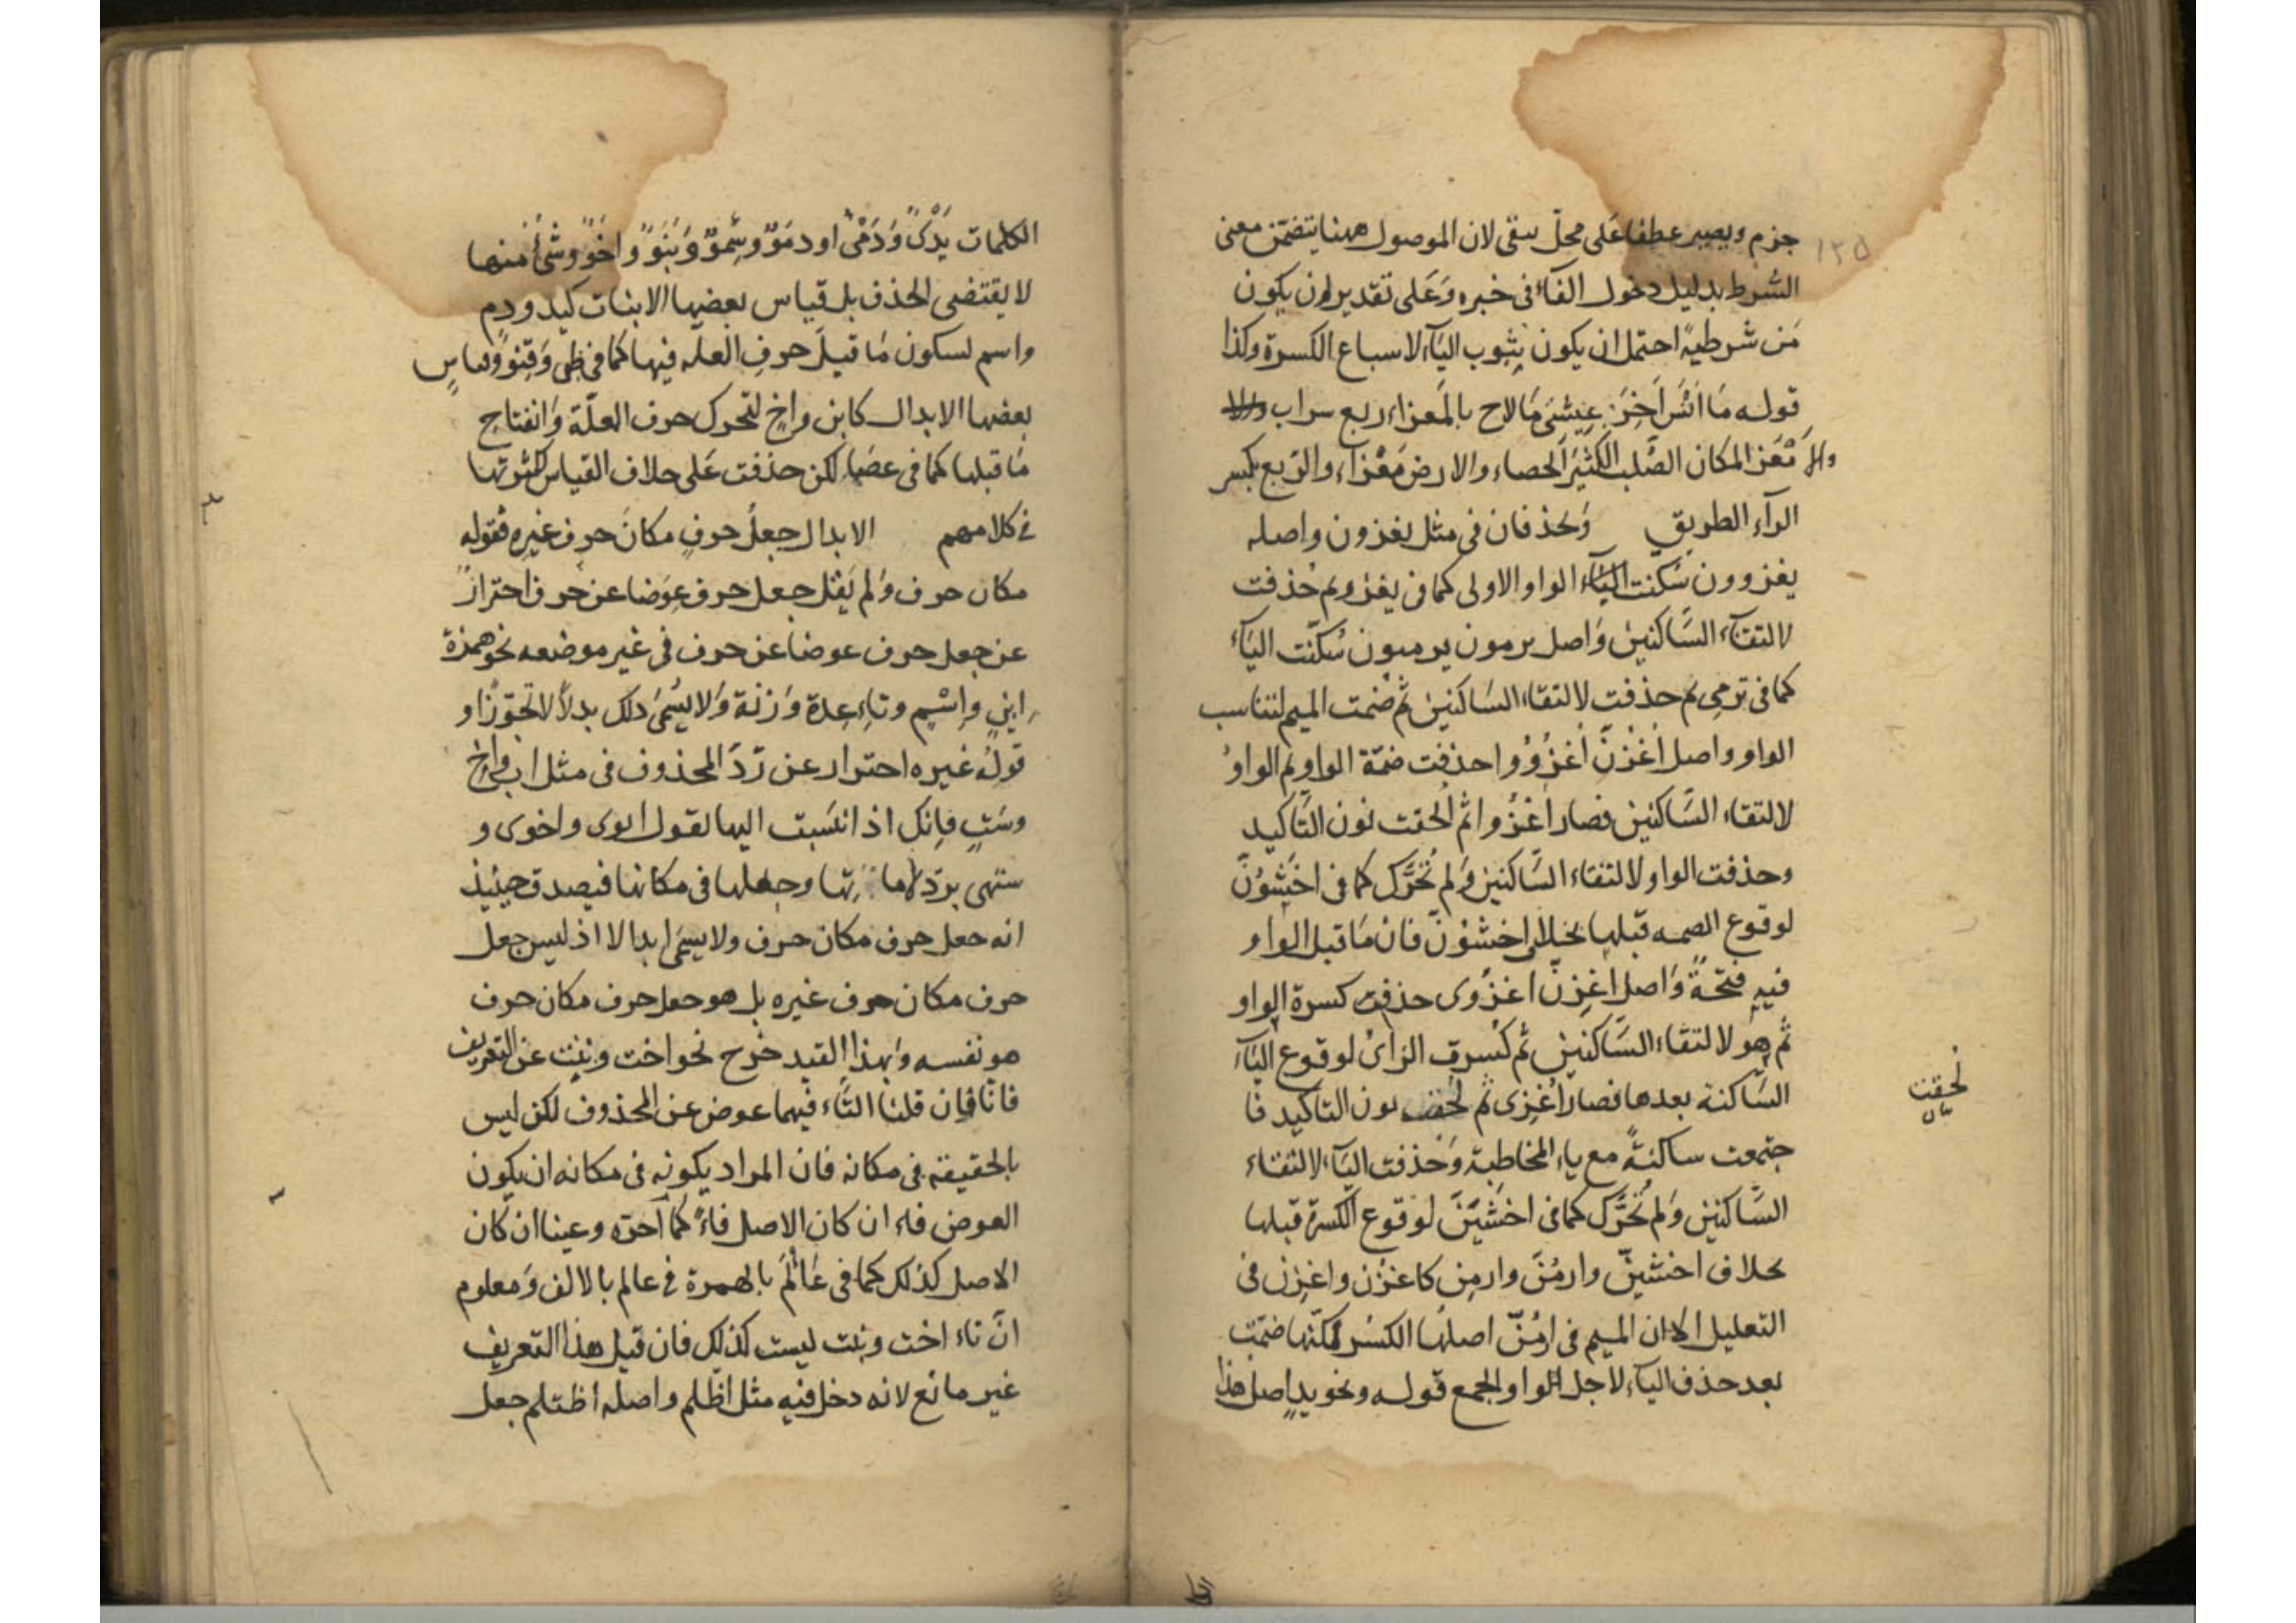 ١٢٥
جزم ويصير عطفا على محل يتقى لان الموصول ههنا يتضمّن معنى
الشرط بدليل دخول الفاء فى خبره وَعَلى تقدير ان يكون
مَن شرطيةً احتمل ان يكون بثبوت اليَآء لاسباع الكسرة وكذا
قوله مَا انْسَ آخِرَ عِيشتى مَا لاح بالمَعزاء ريع سراب
والا مْعَز المكان الصُّلب الكثيْر الحصاء والارض مَعْزاء والرّيع بكسر
الرآء الطريق وَتحذفان فى مثل يغزون واصله
يغزوون سُكنت الواو الاولى كما فى يغزو ثم حُذفت
لالتقآء السَّاكنين وَاصل يرمون يرميون سُكّنت اليَآء
كما فى ترمِى ثم حذفت لالتقاء السَاكنين ثم ضمت الميم لتناسب
الواو واصل اُغْزُنَّ اُغزُوُوا حذفت ضمّة الواو ثم الواوُ
لالتقاء السَّاكنين فصار اُغزُوا ثم اُلحقت نون التَّاكيد
وحذفت الواو لالتقاء السَّاكنين وَلم تُحَرَّك كما فى اخْشَوُنَّ
لوقوع الضمه قبلها بخلاف اخشوُنَّ فانَّ مَا قبل الواو
فيهِ فتحةً وَاصل اغزِنَّ اغزُوِى حذفت كسرة الواو
ثم هو لالتقاء السَّاكنين ثم كُسرت الزاىُ لوقوع اليَآء
السَّاكنة بعدها فصار اُغزِى ثم لحقت نون التاكيد فا
لحقت
بيان
جتمعت ساكنةً مع ياء المخاطبة وَحُذفت اليَآء لالتقاء
السَّاكنين وَلم تُحَرَّك كما فى اخْشَيِنَّ لوقوع الكسرة قبلها
بخلاف اخشيِنّ وارمُنَّ وارمِن كاغزُن واغزِن فى
التعليل الا ان الميم فى ارمُنّ اصلهَا الكسْر لكنّها ضمّت
بعد حذف اليآء لاجل الواو الجمع قوله ونحو يدٍ اصل هذا
الكلمات يَدْىٌ وَدَمْىٌ او دمَوٌ وسِمْوٌ وَبَنَوٌ واخَوٌ وشْىٌ منها
لا يقتضى الحذف بل قياس بعضها الاثبات كيد ودم
واسم لسكون مَا قبلَ حرفِ العله فيها كما فى ظبى وَقِنوٌ وقياس
بعضها الابدال كابن واخٍ لتحرك حرف العلّة وَانفتاح
مَا قبلها كما فى عصَا لكن حذفت عَلى خلاف القياس لكثرتها
فى كلامهم الابدال جعلُ حرفٍ مكانَ حرف غيره فقوله
مكان حرف وَلم يَقُل جعل حرف عِوَضا عن حرف احترازٌ
عن جعل حرف عوضا عن حرف فى غير موضعه نحو همزة
ابنٍ وإسْمٍ وتاءِ عِدة وَزِنة وَلا يُسَمّى ذلك بدلًا الا تجوّزًا و
قولهُ غيره احتراز عن رَدّ المحذوف فى مثل اب واخ
وسَتٍ فانك اذا نسَبت اليها تقول ابوى واخوى و
ستهى بردّ لاما تها وجعلها فى مكانها فيصدق حينيذ
انه جعل حرف مكان حرف ولا يسمّى ابدالا اذ ليس جعل
حرف مكان حرف غيره بل هو جعل حرف مكان حرف
هو نفسه وَبهذا القيد خرج نحو اخت وبنت عن التعريف
فانّا وان قلنا التَّاء فيهما عوض عن المحذوف لكن ليس
بالحقيقة فى مكانه فان المراد بكونه فى مكانه ان يكون
العوض فاء ان كان الاصل فاءً كما اُجوه وعينا ان كان
الاصل كذلك كما فى عَأْلَمَ بالهمزة فى عالم بالالف وَمعلوم
انّ تاء اخت وبنت ليست كذلك فان قيل هذا التعريف
غير مانع لانه دخل فيه مثل اظّلم واصله اظتلم جعل